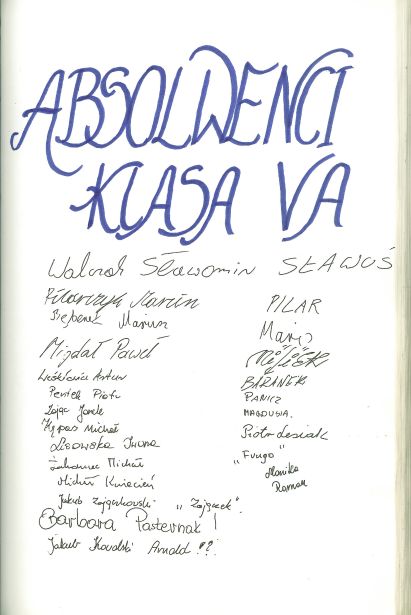 ABSOLWENCI
KLASA VA
Walczak Sławomir SŁAWUŚ
Pilarczyk Marcin PILAR
Mariusz Mario
Migdał Paweł
Artur BARANEK
Piotr PANICZ
Zając Jacek MAGDUSIA.
Kępas Michał Piotr Lesiak
Lisowska Iwona "Fungo"
Michał Monika
Michał Kwiecień Roman
Jakub Zajączkowski "Zajączek".
Barbara Pasternak!
Jakub Kowalski Arnold !?!